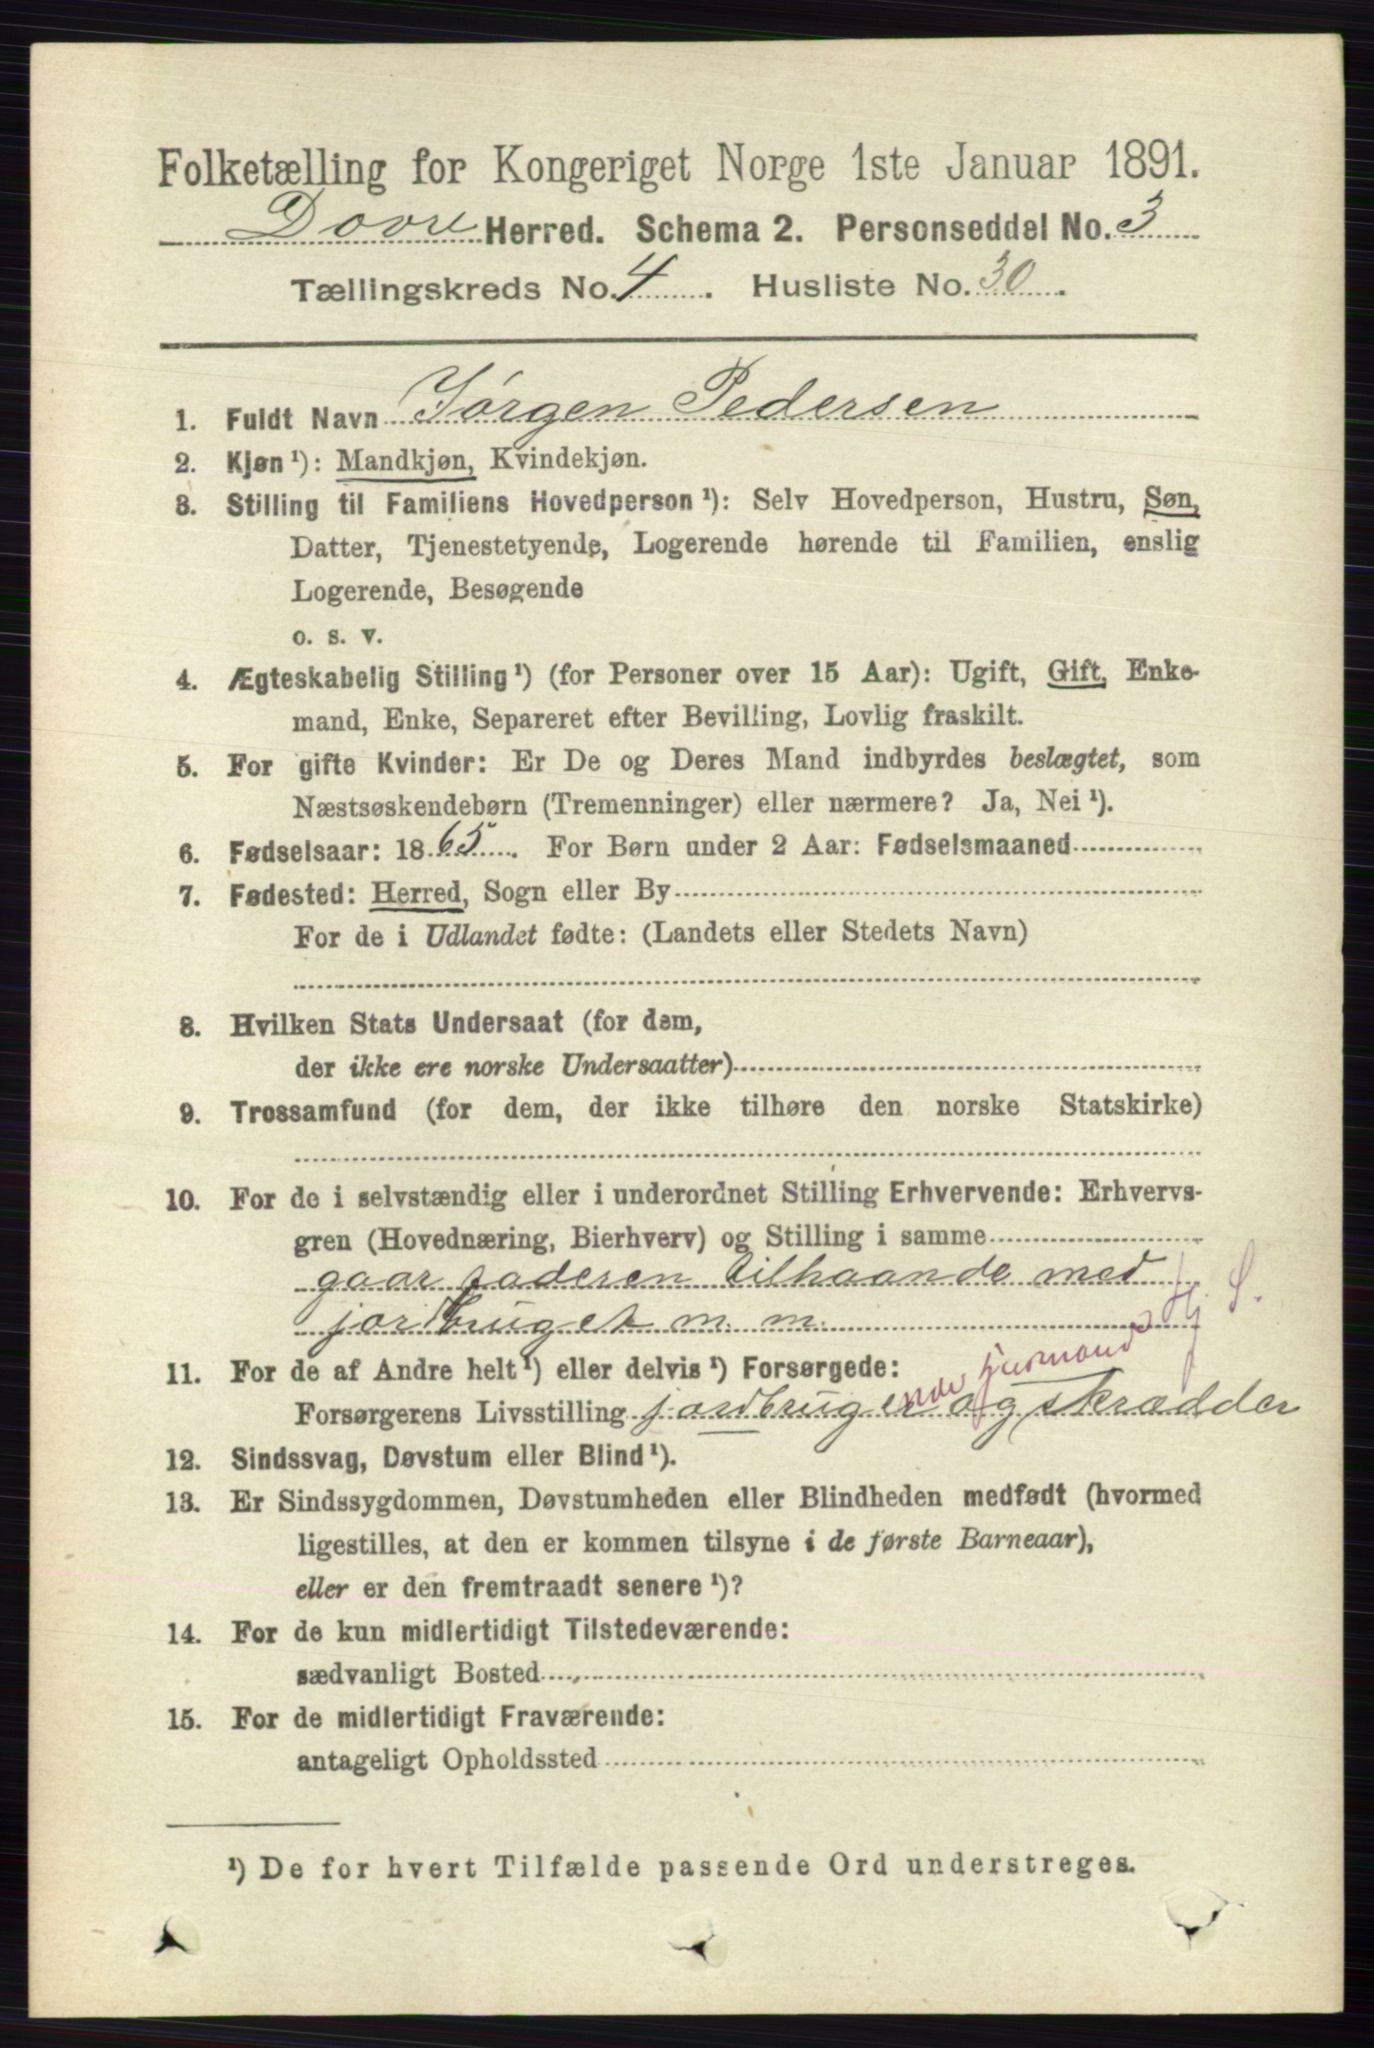 Folketælling for Kongeriget Norge 1ste Januar 1891.
Dovre Herred. Schema 2. Personseddel No. 3
Tællingskreds No. 4. Husliste No. 30.
1. Fuldt Navn Jørgen Pedersen
2. Kjøn ¹): Mandkjøn, Kvindekjøn.
3. Stilling til Familiens Hovedperson ¹): Selv Hovedperson, Hustru, Søn,
Datter, Tjenestetyende, Logerende hørende til Familien, enslig
Logerende, Besøgende
o. s. v.
4. Ægteskabelig Stilling ¹) (for Personer over 15 Aar): Ugift, Gift, Enke-
mand, Enke, Separeret efter Bevilling, Lovlig fraskilt.
5. For gifte Kvinder: Er De og Deres Mand indbyrdes beslægtet, som
Næstsøskendebørn (Tremenninger) eller nærmere? Ja, Nei ¹).
6. Fødselsaar: 1865. For Børn under 2 Aar: Fødselsmaaned
7. Fødested: Herred, Sogn eller By
For de i Udlandet fødte: (Landets eller Stedets Navn)
8. Hvilken Stats Undersaat (for dem,
der ikke ere norske Undersaatter)
9. Trossamfund (for dem, der ikke tilhøre den norske Statskirke)
10. For de i selvstændig eller i underordnet Stilling Erhvervende: Erhvervs-
gren (Hovednæring, Bierhverv) og Stilling i samme
gaar faderen tilhaande med
jordbruget m. m.
11. For de af Andre helt ¹) eller delvis ¹) Forsørgede:
Forsørgerens Livsstilling jordbruger og skrædder
12. Sindssvag, Døvstum eller Blind ¹).
13. Er Sindssygdommen, Døvstumheden eller Blindheden medfødt (hvormed
ligestilles, at den er kommen tilsyne i de første Barneaar),
eller er den fremtraadt senere ¹)?
14. For de kun midlertidigt Tilstedeværende:
sædvanligt Bosted
15. For de midlertidigt Fraværende:
antageligt Opholdssted
¹) De for hvert Tilfælde passende Ord understreges.